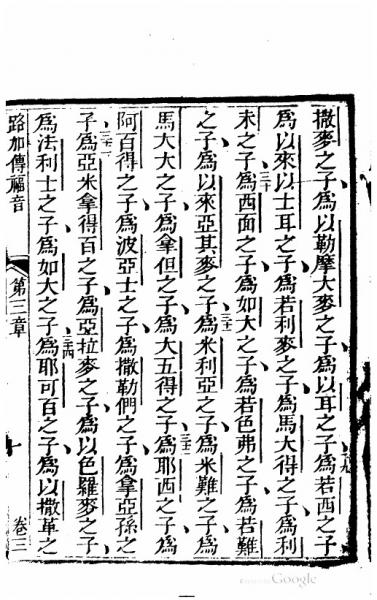 撒麥之子爲以勒摩大麥之子爲以耳之子爲若西之子
二九
爲以來以士耳之子爲若利麥之子爲馬大得之子爲利
未之子爲西面之子爲如大之子爲若色弗之子爲若難
三十
之子爲以來亞其麥之子爲米利亞之子爲米難之子爲
三一
馬大大之子爲拿但之子爲大五得之子爲耶西之子爲
三二
阿百得之子爲波亞士之子爲撒勒們之子爲拿亞孫之
子爲亞米拿得百之子爲亞拉麥之子爲以色羅麥之子
三三
爲法利士之子爲如大之子爲耶可百之子爲以撒革之
三四
路加傳福音
第三章
十
卷三
Google